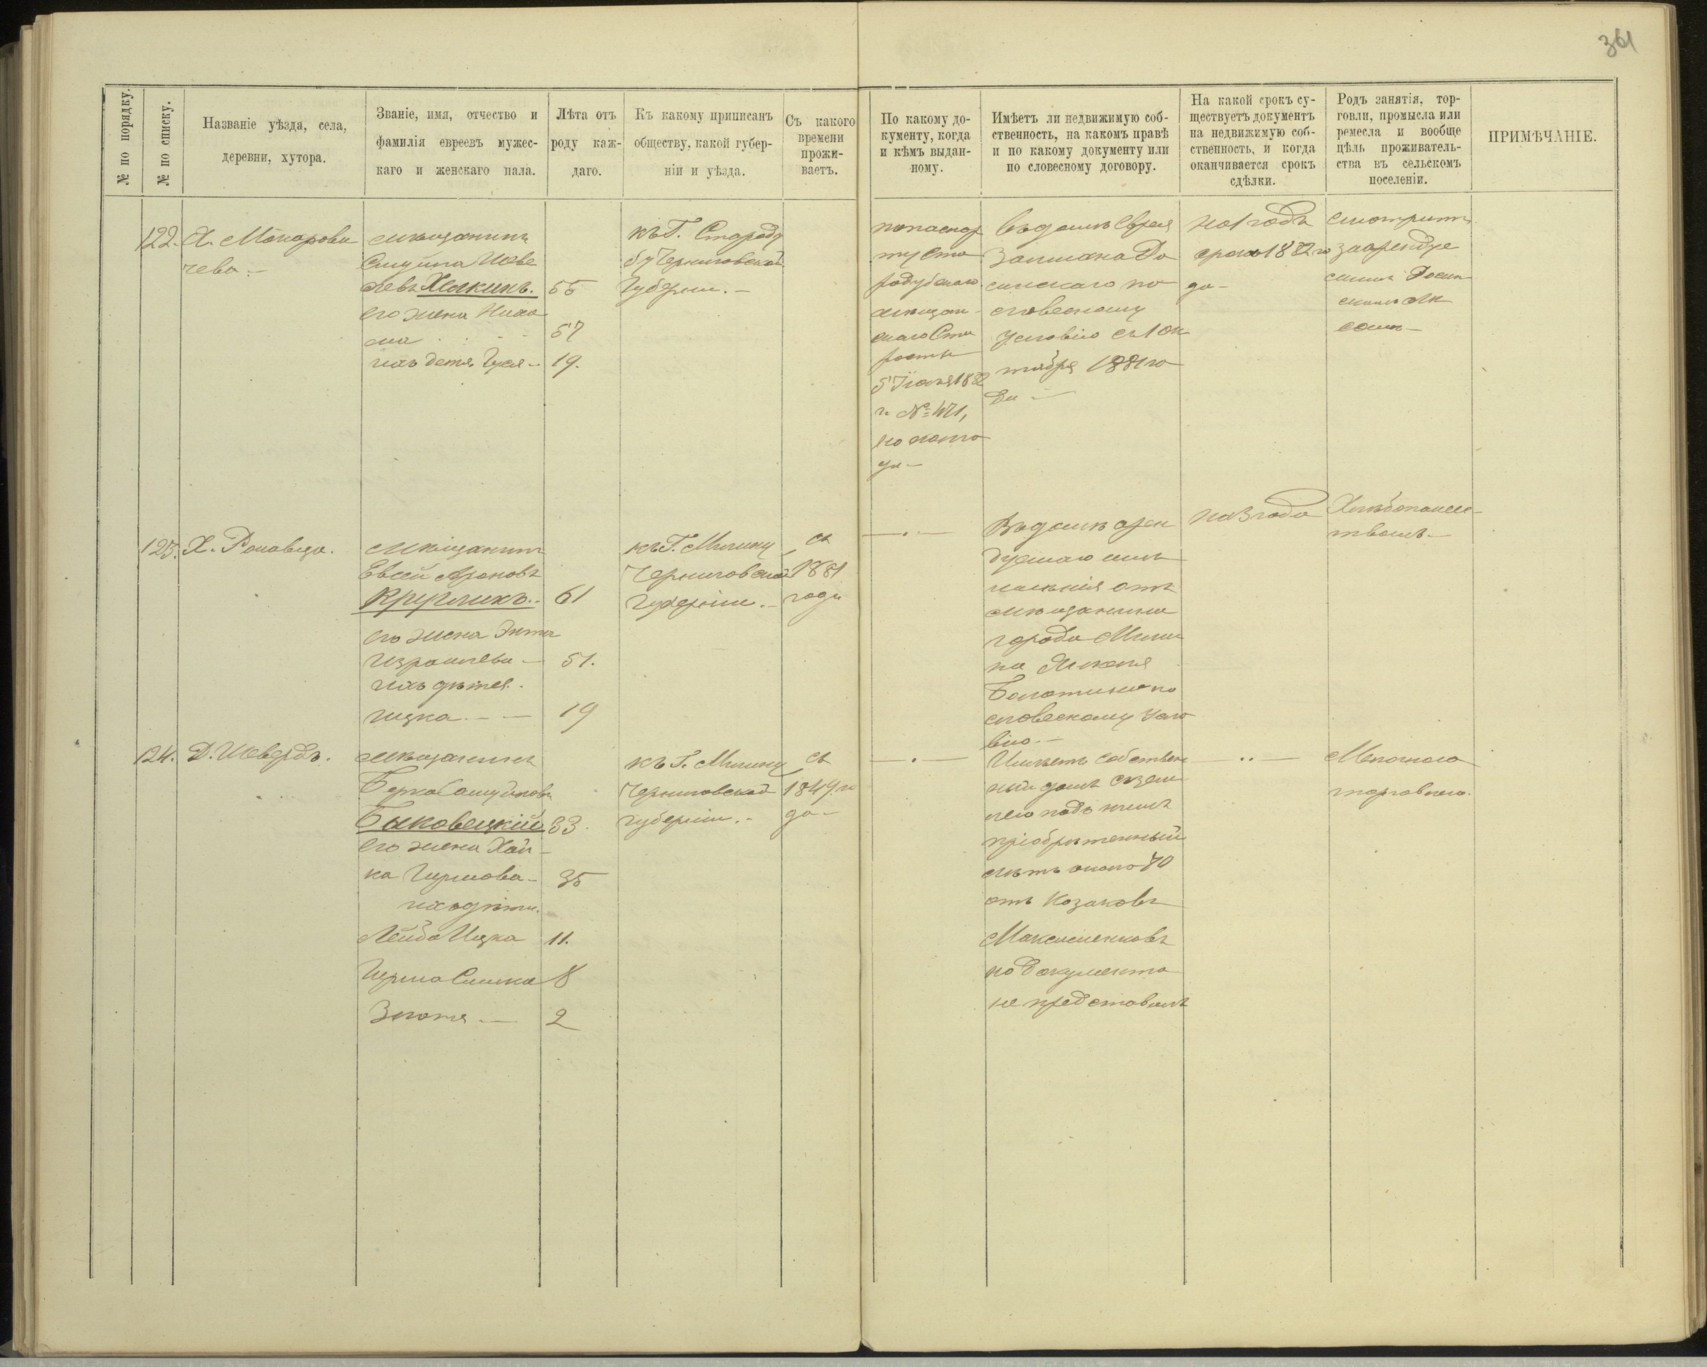 361
№ по порядку.
№ по списку.
Названіе уѣзда, села,
деревни, хутора.
Званіе, имя, отчество и
фамилія евреевъ мужес-
каго и женскаго пала.
Лѣта отъ
роду каж-
даго.
Къ какому приписанъ
обществу, какой губер-
ніи и уѣзда.
Съ какого
времени
прожи-
ваетъ.
По какому до-
кументу, когда
и кѣмъ выдан-
ному.
Имѣетъ ли недвижимую соб-
ственность, на какомъ правѣ
и по какому документу или
по словесному договору.
На какой срокъ су-
ществуетъ документъ
на недвижимую соб-
ственность, и когда
оканчивается срокъ
сдѣлки.
Родъ занятія, тор-
говли, промысла или
ремесла и вообще
цѣль проживатель-
ства въ сельскомъ
поселеніи.
ПРИМѢЧАНІЕ.
122.
Х. Макарови
чева.
мѣщанинъ
Хлыкинъ. 55
его жена
57
ихъ дети 19.
къ Г. Староду
бу Черниговской
Губерніи.
по паспор
ту Ста
родубскаго
мѣщан
скаго Ста
росты
5 1882
г. № 471,
на полго
да
въ домѣ Еврея
по
словесному
условію съ 1 Ок
тября 1881 го
да
на 1 годъ
срокъ 1882 го
да
смотритъ
за арендуе
123.
Х. Роговца.
мѣщанинъ
Евсей Ароновъ
Кругликъ. 61
его жена
Израилева 51.
ихъ дѣтей.
Ицка 19
къ Г. Мглину
Черниговской
Губерніи.
съ
1881
года
Въ домѣ арен
дуемаго имъ
имѣнія отъ
мѣщанина
города Мгли
на
по
словесному усло
вію
на 3 года
Хлѣбопашес
твомъ
124.
Д. Шевердъ.
мѣщанинъ
Берка
Быковецкій 33.
его жена Хай
ка Гиршова 35
ихъ дѣти.
Лейба Ицка 11.
Гирша Симка 8
Злота 2
къ Г. Мглину
Черниговской
Губерніи.
съ
1849 го
да
Имѣетъ собствен
ный домъ съ зем
лею подъ нимъ
пріобрѣтенный
лѣтъ около 70
отъ Козаковъ
Максименковъ
но документа
не представилъ
Мелочною
торговлею.